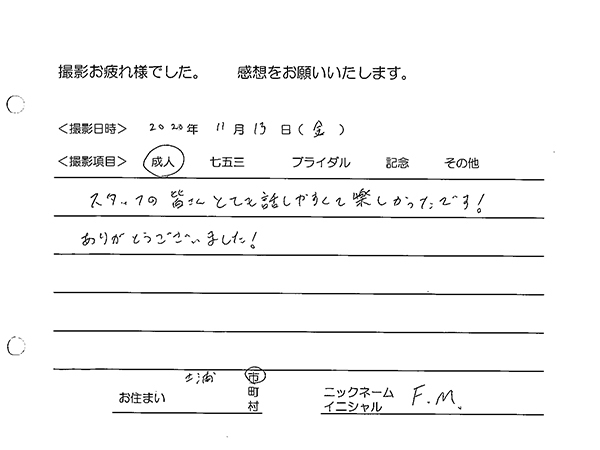 撮影お疲れ様でした。　感想をお願いいたします。
＜撮影日時＞ 2020年 11月 13日（金）
＜撮影項目＞ 成人 七五三 ブライダル 記念 その他
スタッフの皆さんとても話しやすくて楽しかったです！
ありがとうございました！
お住まい 土浦 市 町 村
ニックネーム イニシャル F.M.